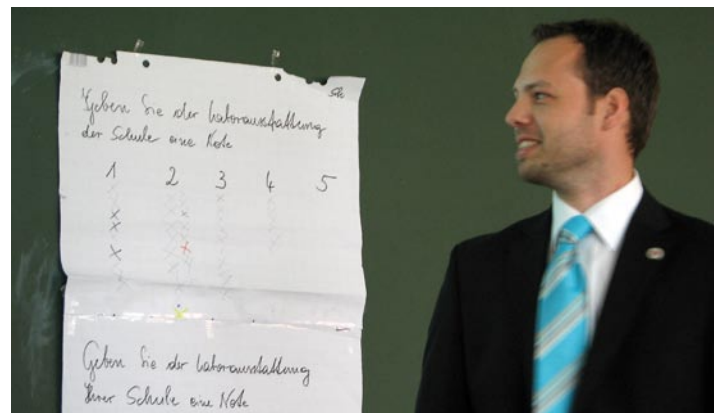 Geben Sie der Laborausstattung
der Schule eine Note
1 2 3 4 5
Geben Sie der Laborausstattung
Ihrer Schule eine Note